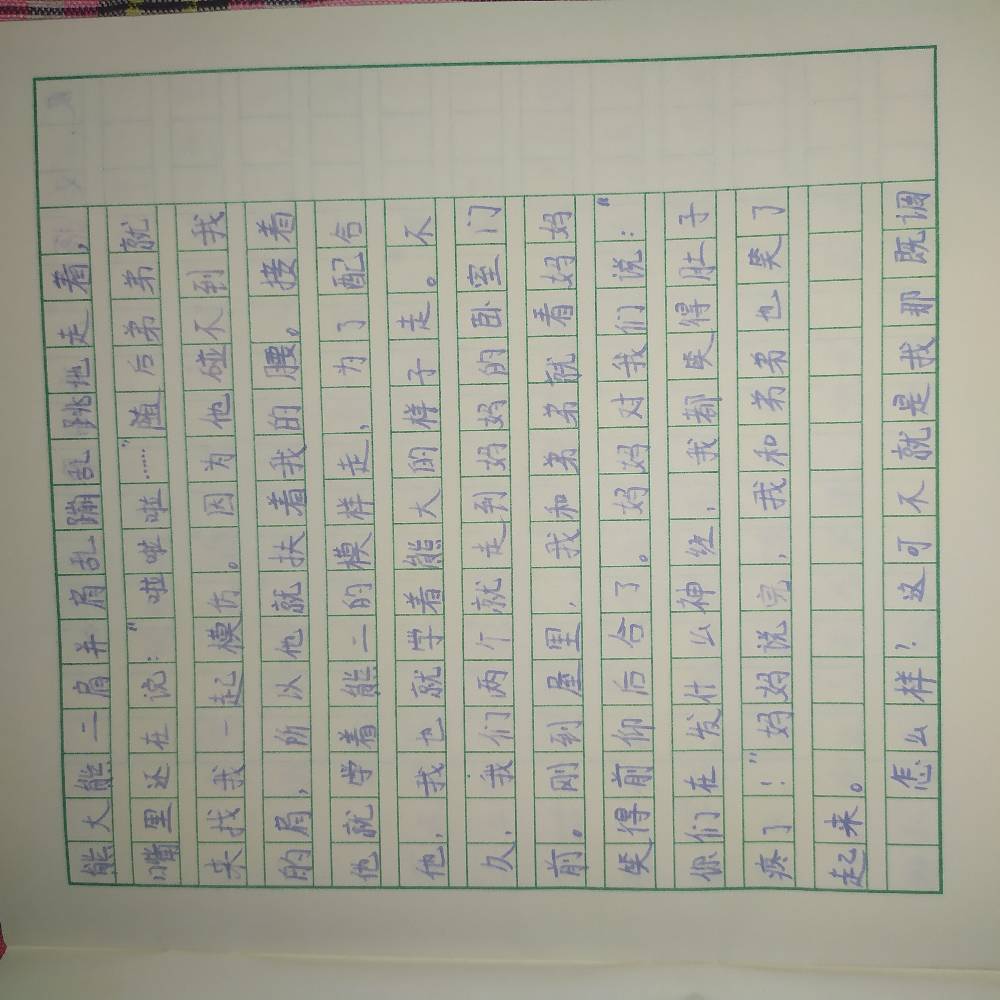 熊大熊二肩并肩乱蹦乱跳地走着，
嘴里还在说：“啦啦啦……”随后弟弟就
来找我一起模仿。因为他碰不到我
的肩，所以他就扶着我的腰。接着
他就学着熊二的模样走，为了配合
他，我也就学着熊大的样子走。不
久，我们两个就走到妈妈的卧室门
前。刚到屋里，我和弟弟就看妈妈
笑得前仰后合了。妈妈对我们说：“
你们在发什么神经，我都笑得肚子
疼了！”妈妈说完，我和弟弟也笑了
起来。
怎么样？这可不就是我那既调